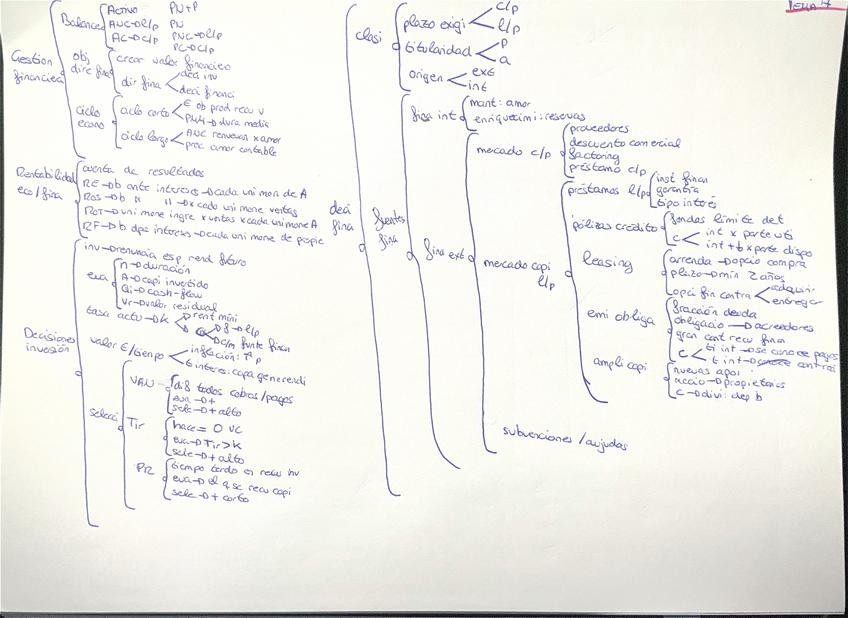 TEMA 17
Gestion financiera
Balance
Activo PN+P
ANC→l/p PN
AC→c/p PNC→l/p
PC→c/p
obj dire fina
crear valor financiero
dir fina
deci inv
deci financi
ciclo econo
ciclo corto
€ ob prod recu v
PMM→dura media
ciclo largo
ANC renuevan x amor
proc amor contable
Rentabilidad eco/fina
cuenta de resultados
RE→b ante intereses→cada uni mon de A
ROS→b " "→x cada uni mone ventas
ROT→uni mone ingre x ventas x cada uni mone A
RF→b dpe intereses→cada uni mone de propie
Decisiones inversión
inv→renuncia esp rend futuro
eva
n→duración
A→capi invertido
Qi→cash-flow
Vr→valor residual
tasa actu→k
rent mini
valor €/tienpo
inflación: ↑ p
t interes: capa generendi
selecci
VAN
dif todos cobros/pagos
eva→+
sele→+ alto
Tir
hace = 0 VC
eva→Tir>k
sele→+ alto
PR
tiempo tarda en recu inv
eva→el q se recu capi
sele→+ corto
deci fina
clasi
plazo exigi
c/p
l/p
titularidad
p
a
origen
ext
int
fuentes fina
fina int
mant: amor
enriquecimi: reservas
fina ext
mercado c/p
proveedores
descuento comercial
factoring
préstamo c/p
mercado capi l/p
préstamos l/p
inst finan
garantia
tipo interés
pólizas crédito
fondos limite det
c
int x parte uti
int + b x parte dispo
leasing
arrenda→opcio compra
plazo→min 2 años
opci fin contra
adquirir
entregar
emi obliga
fracción deuda
obligacio→acreedores
gran cant recu finan
c
ampli capi
nuevas apor
accio→propietarios
c→divi: dep b
subvenciones/ayudas